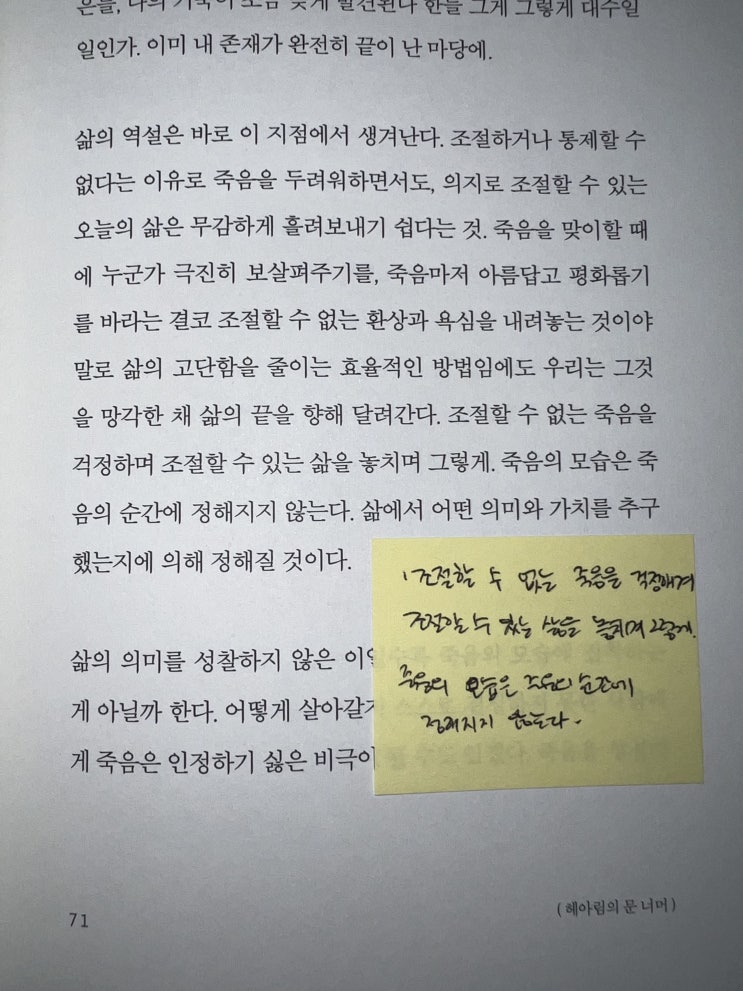 은들, 나의 기록이 조금 늦게 발견된다 한들 그게 그렇게 대수일
일인가. 이미 내 존재가 완전히 끝이 난 마당에.
삶의 역설은 바로 이 지점에서 생겨난다. 조절하거나 통제할 수
없다는 이유로 죽음을 두려워하면서도, 의지로 조절할 수 있는
오늘의 삶은 무감하게 흘려보내기 쉽다는 것. 죽음을 맞이할 때
에 누군가 극진히 보살펴주기를, 죽음마저 아름답고 평화롭기
를 바라는 결코 조절할 수 없는 환상과 욕심을 내려놓는 것이야
말로 삶의 고단함을 줄이는 효율적인 방법임에도 우리는 그것
을 망각한 채 삶의 끝을 향해 달려간다. 조절할 수 없는 죽음을
걱정하며 조절할 수 있는 삶을 놓치며 그렇게. 죽음의 모습은 죽
음의 순간에 정해지지 않는다. 삶에서 어떤 의미와 가치를 추구
했는지에 의해 정해질 것이다.
삶의 의미를 성찰하지 않은 이
게 아닐까 한다. 어떻게 살아갈
게 죽음은 인정하기 싫은 비극이
조절할 수 없는 죽음을
조절할 수 있는 삶을 놓치며 그렇게.
죽음의 모습은 죽음의 순간에
정해지지 않는다.
71
(헤아림의 문 너머)